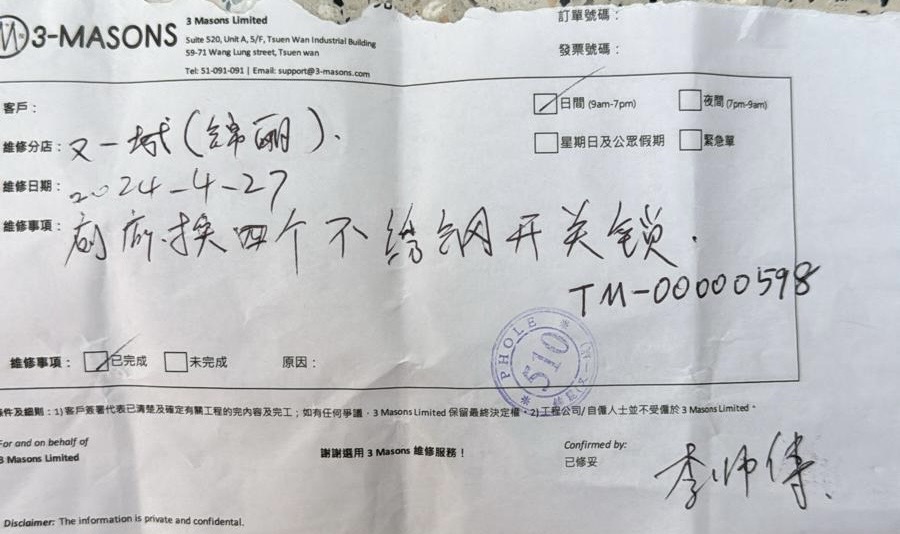 3-MASONS
3 Masons Limited
Suite 520, Unit A, 5/F, Tsuen Wan Industrial Building
59-71 Wang Lung street, Tsuen wan
Tel: 51-091-091 | Email: support@3-masons.com
訂單號碼：
發票號碼：
客戶：
日間 (9am-7pm)
夜間 (7pm-9am)
維修分店：又一城(錦麗).
星期日及公眾假期
緊急單
維修日期：2024-4-27
維修事項：廁所.换四个不绣钢开关锁.
TM-00000598
維修事項：
已完成
未完成
原因：
PHOLE
510
條件及細則：1)客戶簽署代表已清楚及確定有關工程的完內容及完工；如有任何爭議，3 Masons Limited 保留最終決定權。2)工程公司/自僱人士並不受僱於 3 Masons Limited。
For and on behalf of
3 Masons Limited
謝謝選用 3 Masons 維修服務！
Confirmed by:
已修妥
李师傅.
Disclaimer: The information is private and confidential.